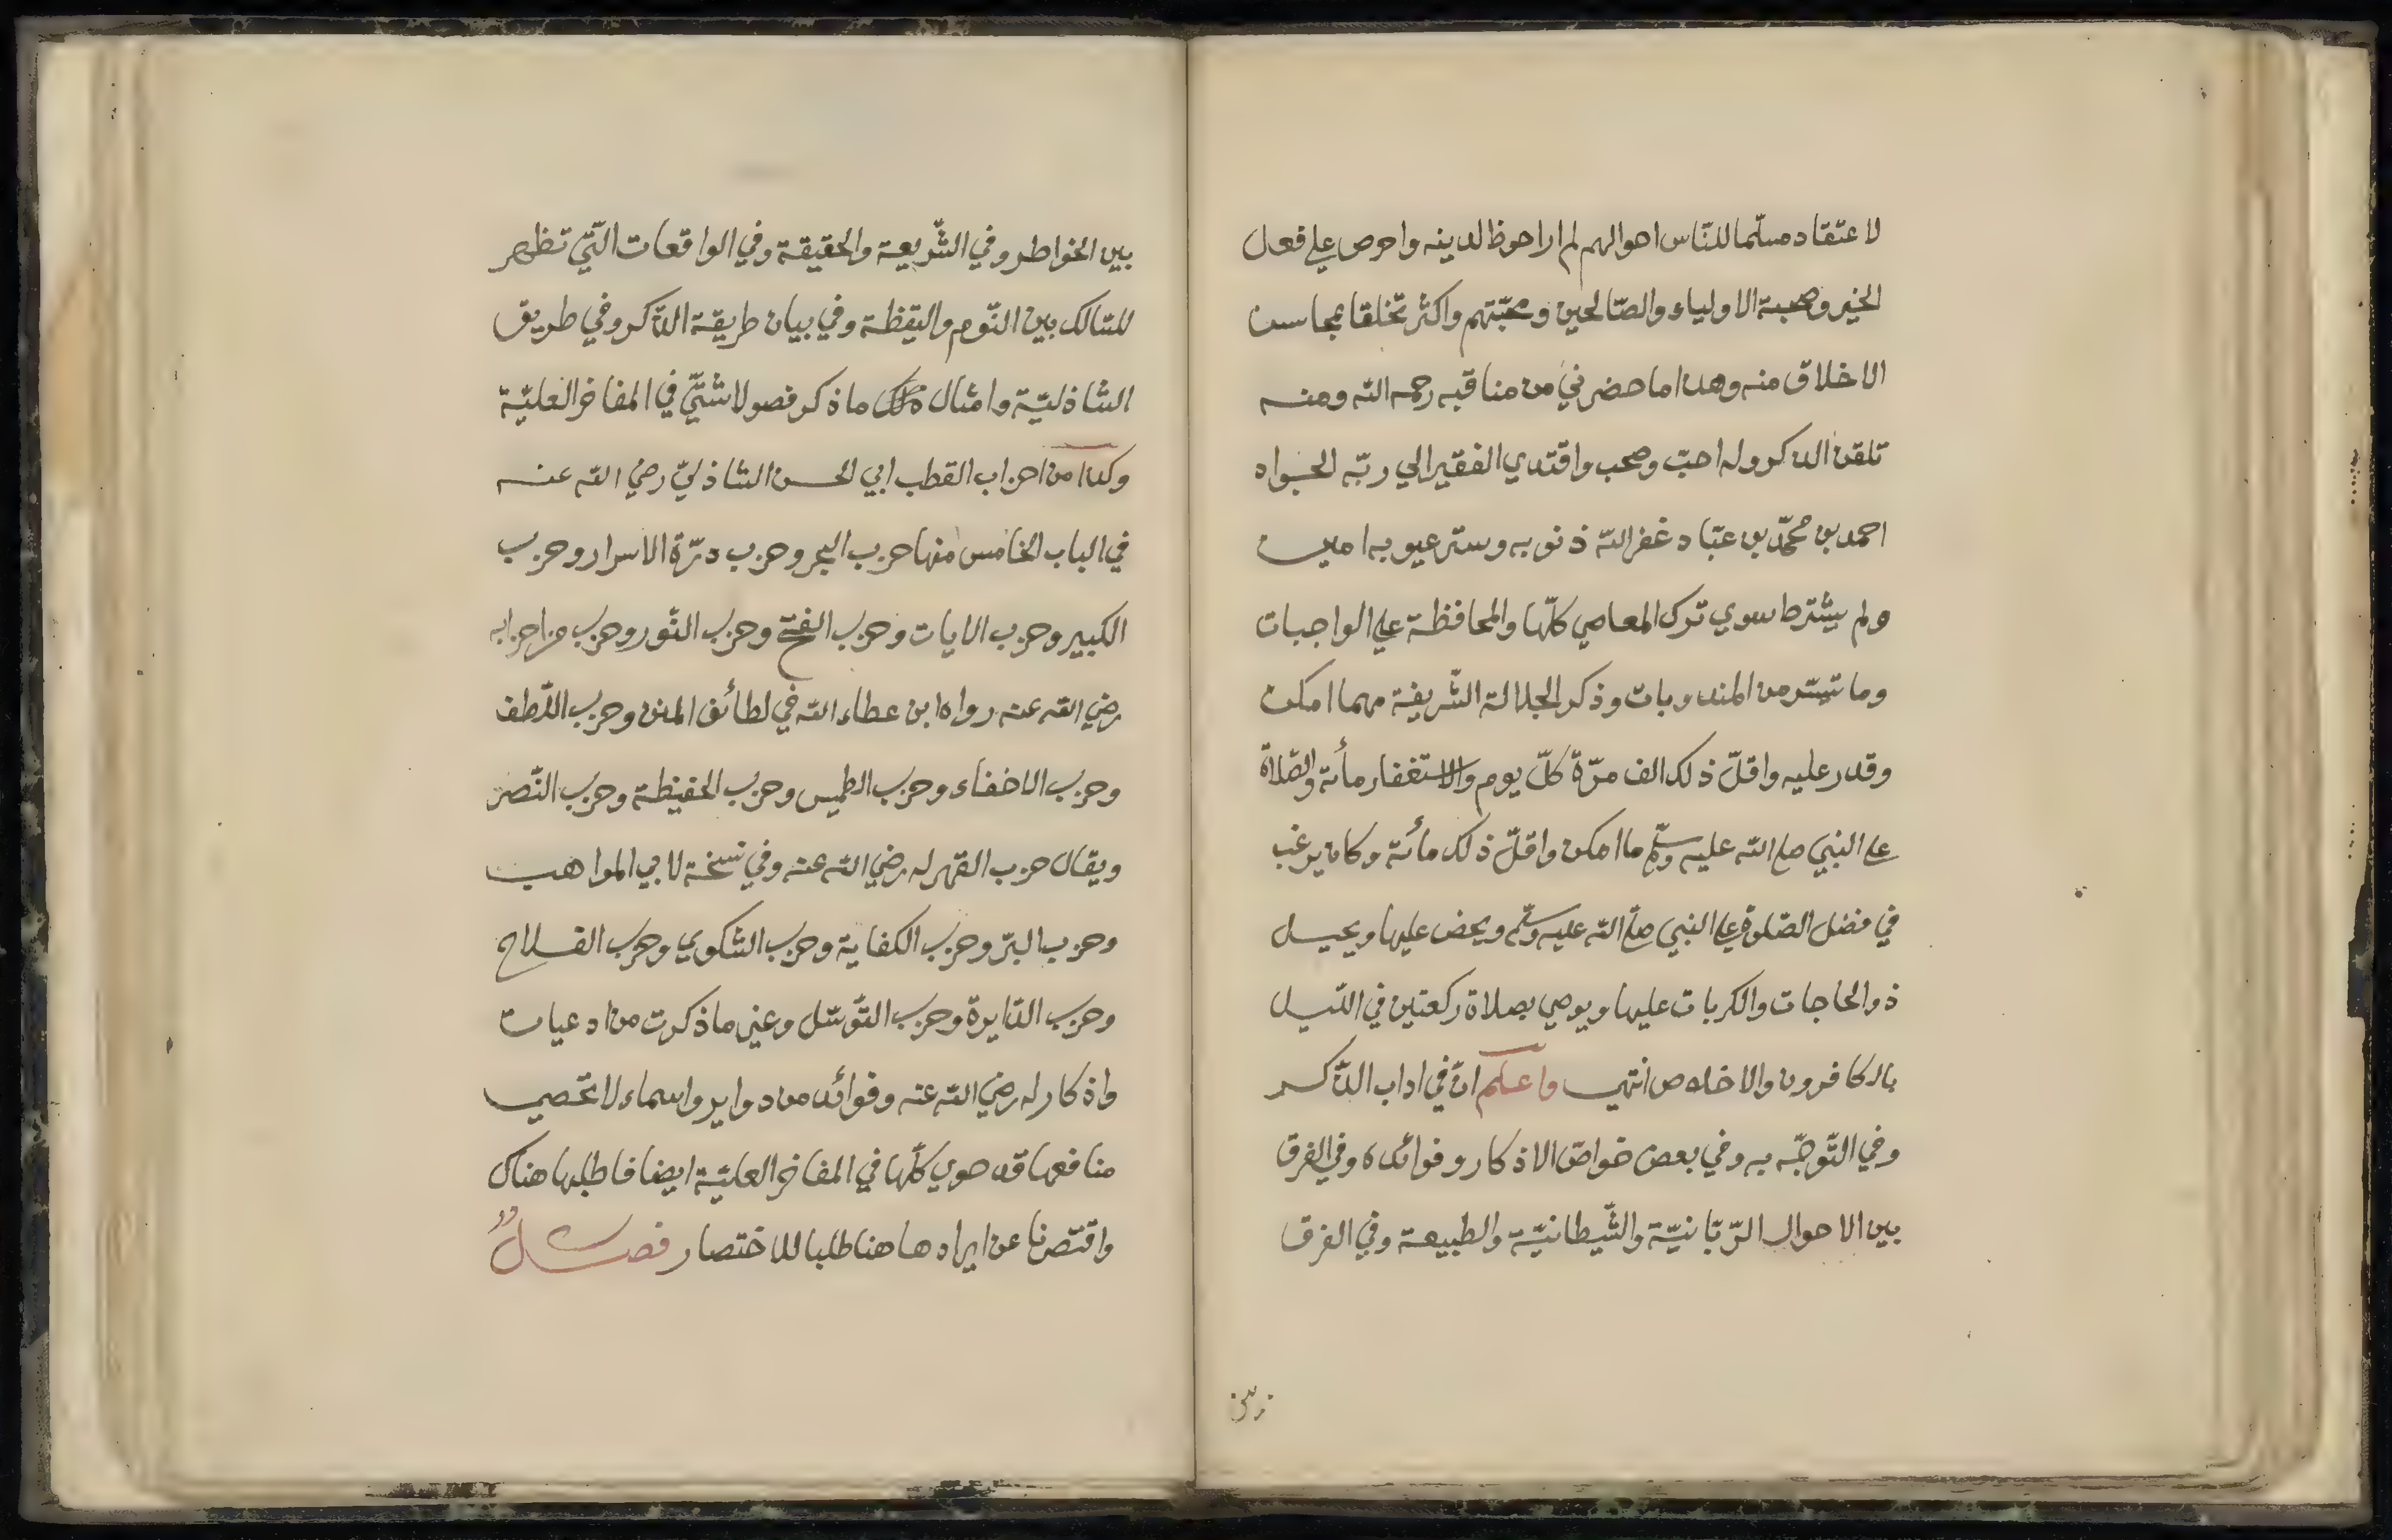 لاعتقاد مسلّما للنّاس احوالهم لم ار احوظ لدينه واحرص علي فعل
الخير وصحبة الاولياء والصّالحين ومحبّتهم واكثر تخلقا بمحاسن
الاخلاق منه وهذا ما حضرني من مناقبه رحمه اللّه ومنه
تلقن الذكر وله احبّ وصحب واقتدي الفقير الي ربّه الجواد
احمد بن محمّد بن عبّاد غفر اللّه ذنوبه وستر عيوبه امين
ولم يشترط سوي ترك المعاصي كلّها والمحافظة علي الواجبات
وما تيسّر من المندوبات وذكر الجلالة الشّريفة مهما امكن
وقدر عليه واقلّ ذلك الف مرّة كلّ يوم والاستغفار مأئة والصّلاة
علي النبيّ صلي اللّه عليه وسلّم ما امكن واقلّ ذلك مأئة وكان يرغب
في فضل الصّلوة علي النبي صلّي اللّه عليه وسلّم ويحض عليها ويحيل
ذو الحاجات والكربات عليها ويوصي بصلاة ركعتين في اللّيل
بالكافرون والاخلاص انتهي واعلم انّ في اداب الذّكر
وفي التّوجّه به وفي بعض خواصّ الاذكار وفوائده وفي الفرق
بين الاحوال الرّبّانيّة والشّيطانيّة والطبيعة وفي الفرق
بين الخواطر وفي الشّريعة والحقيقة وفي الواقعات الّتي تظهر
للسّالك بين النّوم واليقظة وفي بيان طريقة الذّكر وفي طريق
الشاذليّة وامثال ذلك ما ذكر فصولا شتّي في المفاخر العليّة
وكذا من احزاب القطب ابي الحسن الشاذليّ رضي اللّه عنه
في الباب الخامس منها حزب البحر وحزب درّة الاسرار وحزب
الكبير وحزب الايات وحزب الفتح وحزب النّور وحزب من احزابه
رضي اللّه عنه رواه ابن عطاء اللّه في لطائف المنن وحزب اللّطف
وحزب الاخفاء وحزب الطمس وحزب الحفيظة وحزب النّصر
ويقال حزب القهر له رضي اللّه عنه وفي نسخة لابي المواهب
وحزب البرّ وحزب الكفاية وحزب الشّكوي وحزب الفلاح
وحزب الدّايرة وحزب التّوسّل وغير ما ذكرت من ادعيات
واذكار له رضي اللّه عنه وفوائد من دواير واسماء لا تحصي
منافعها قد حوي كلّها في المفاخر العليّة ايضا فاطلبها هناك
واقتصرنا عن ايرادها هنا طلبا للاختصار فصلٌ